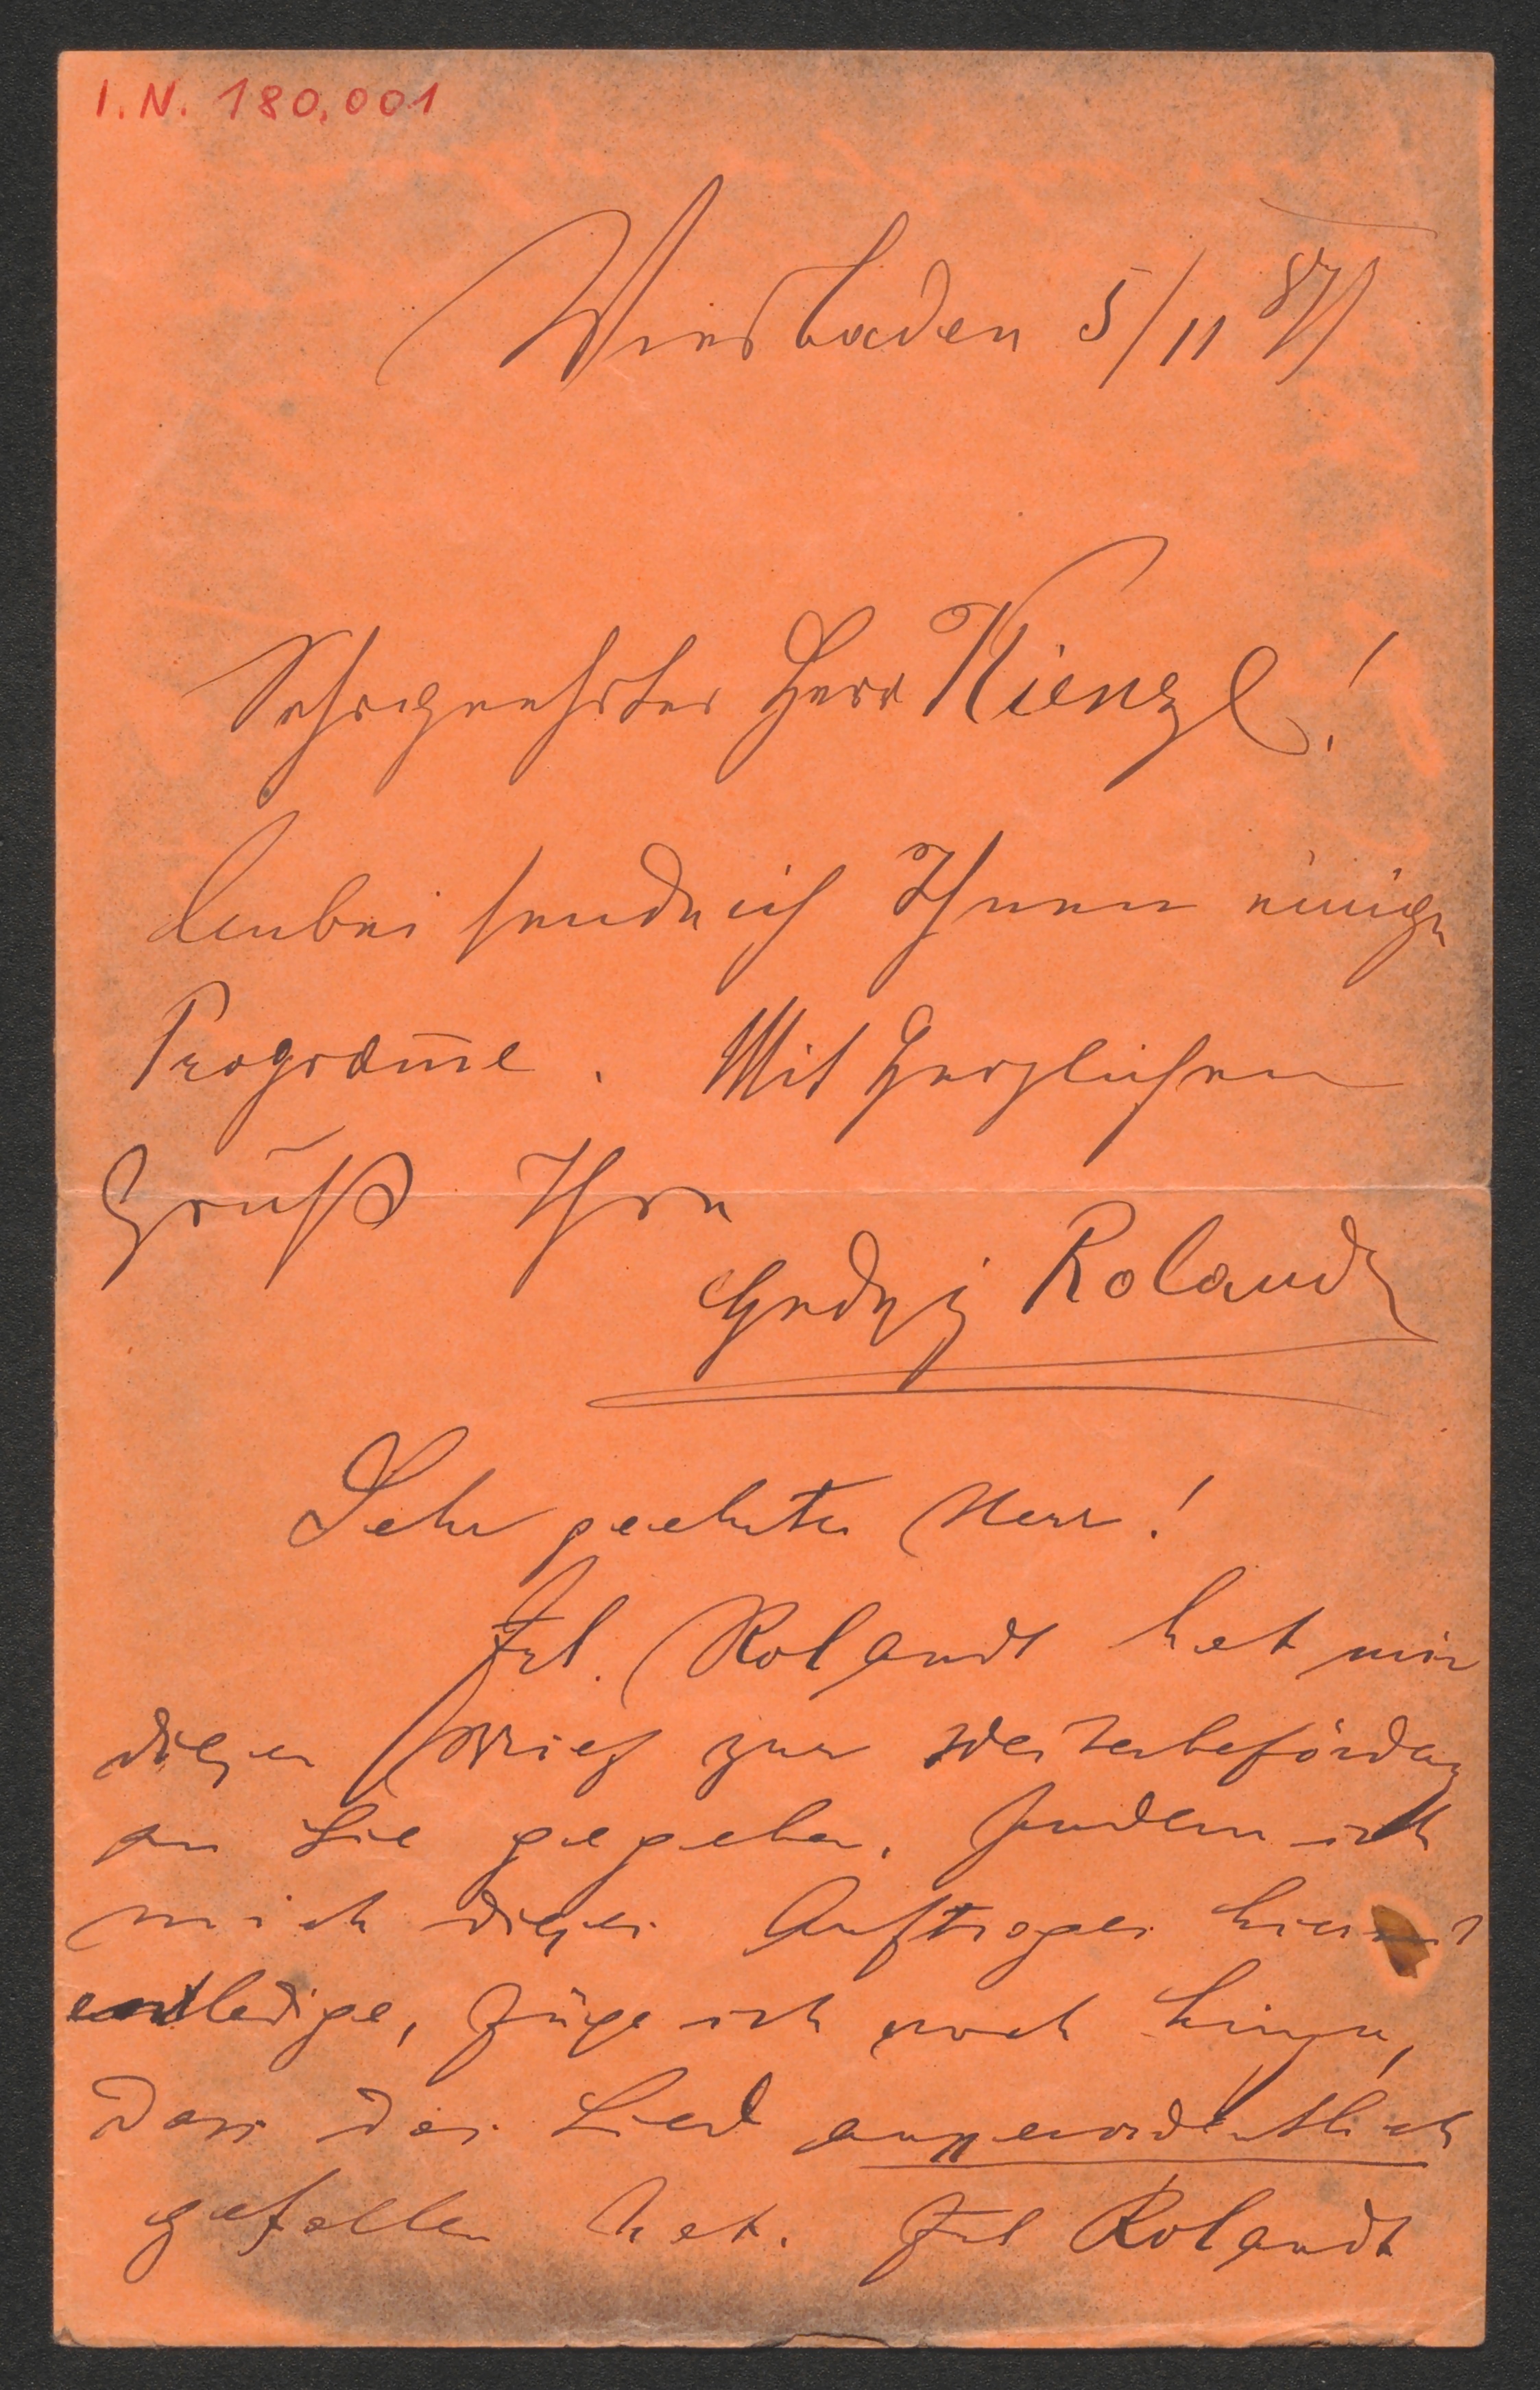 I.N. 180,001
Wiesbaden 5/11 87
Sehrgeehrter Herr Kienzl!
Anbei sende ich Ihnen einige
Programm̄e. Mit herzlichen
Gruß Ihre
Hedwig Rolandt
Sehr geehrter Herr!
Frl. Rolandt hat mir
diesen Brief zur Weiterbeförderung
an Sie gegeben. Indem ich
mich dieses Auftrages hiermit
entledige, füge ich noch hinzu,
dass das Lied ausserordentlich
gefallen hat. Frl Rolandt